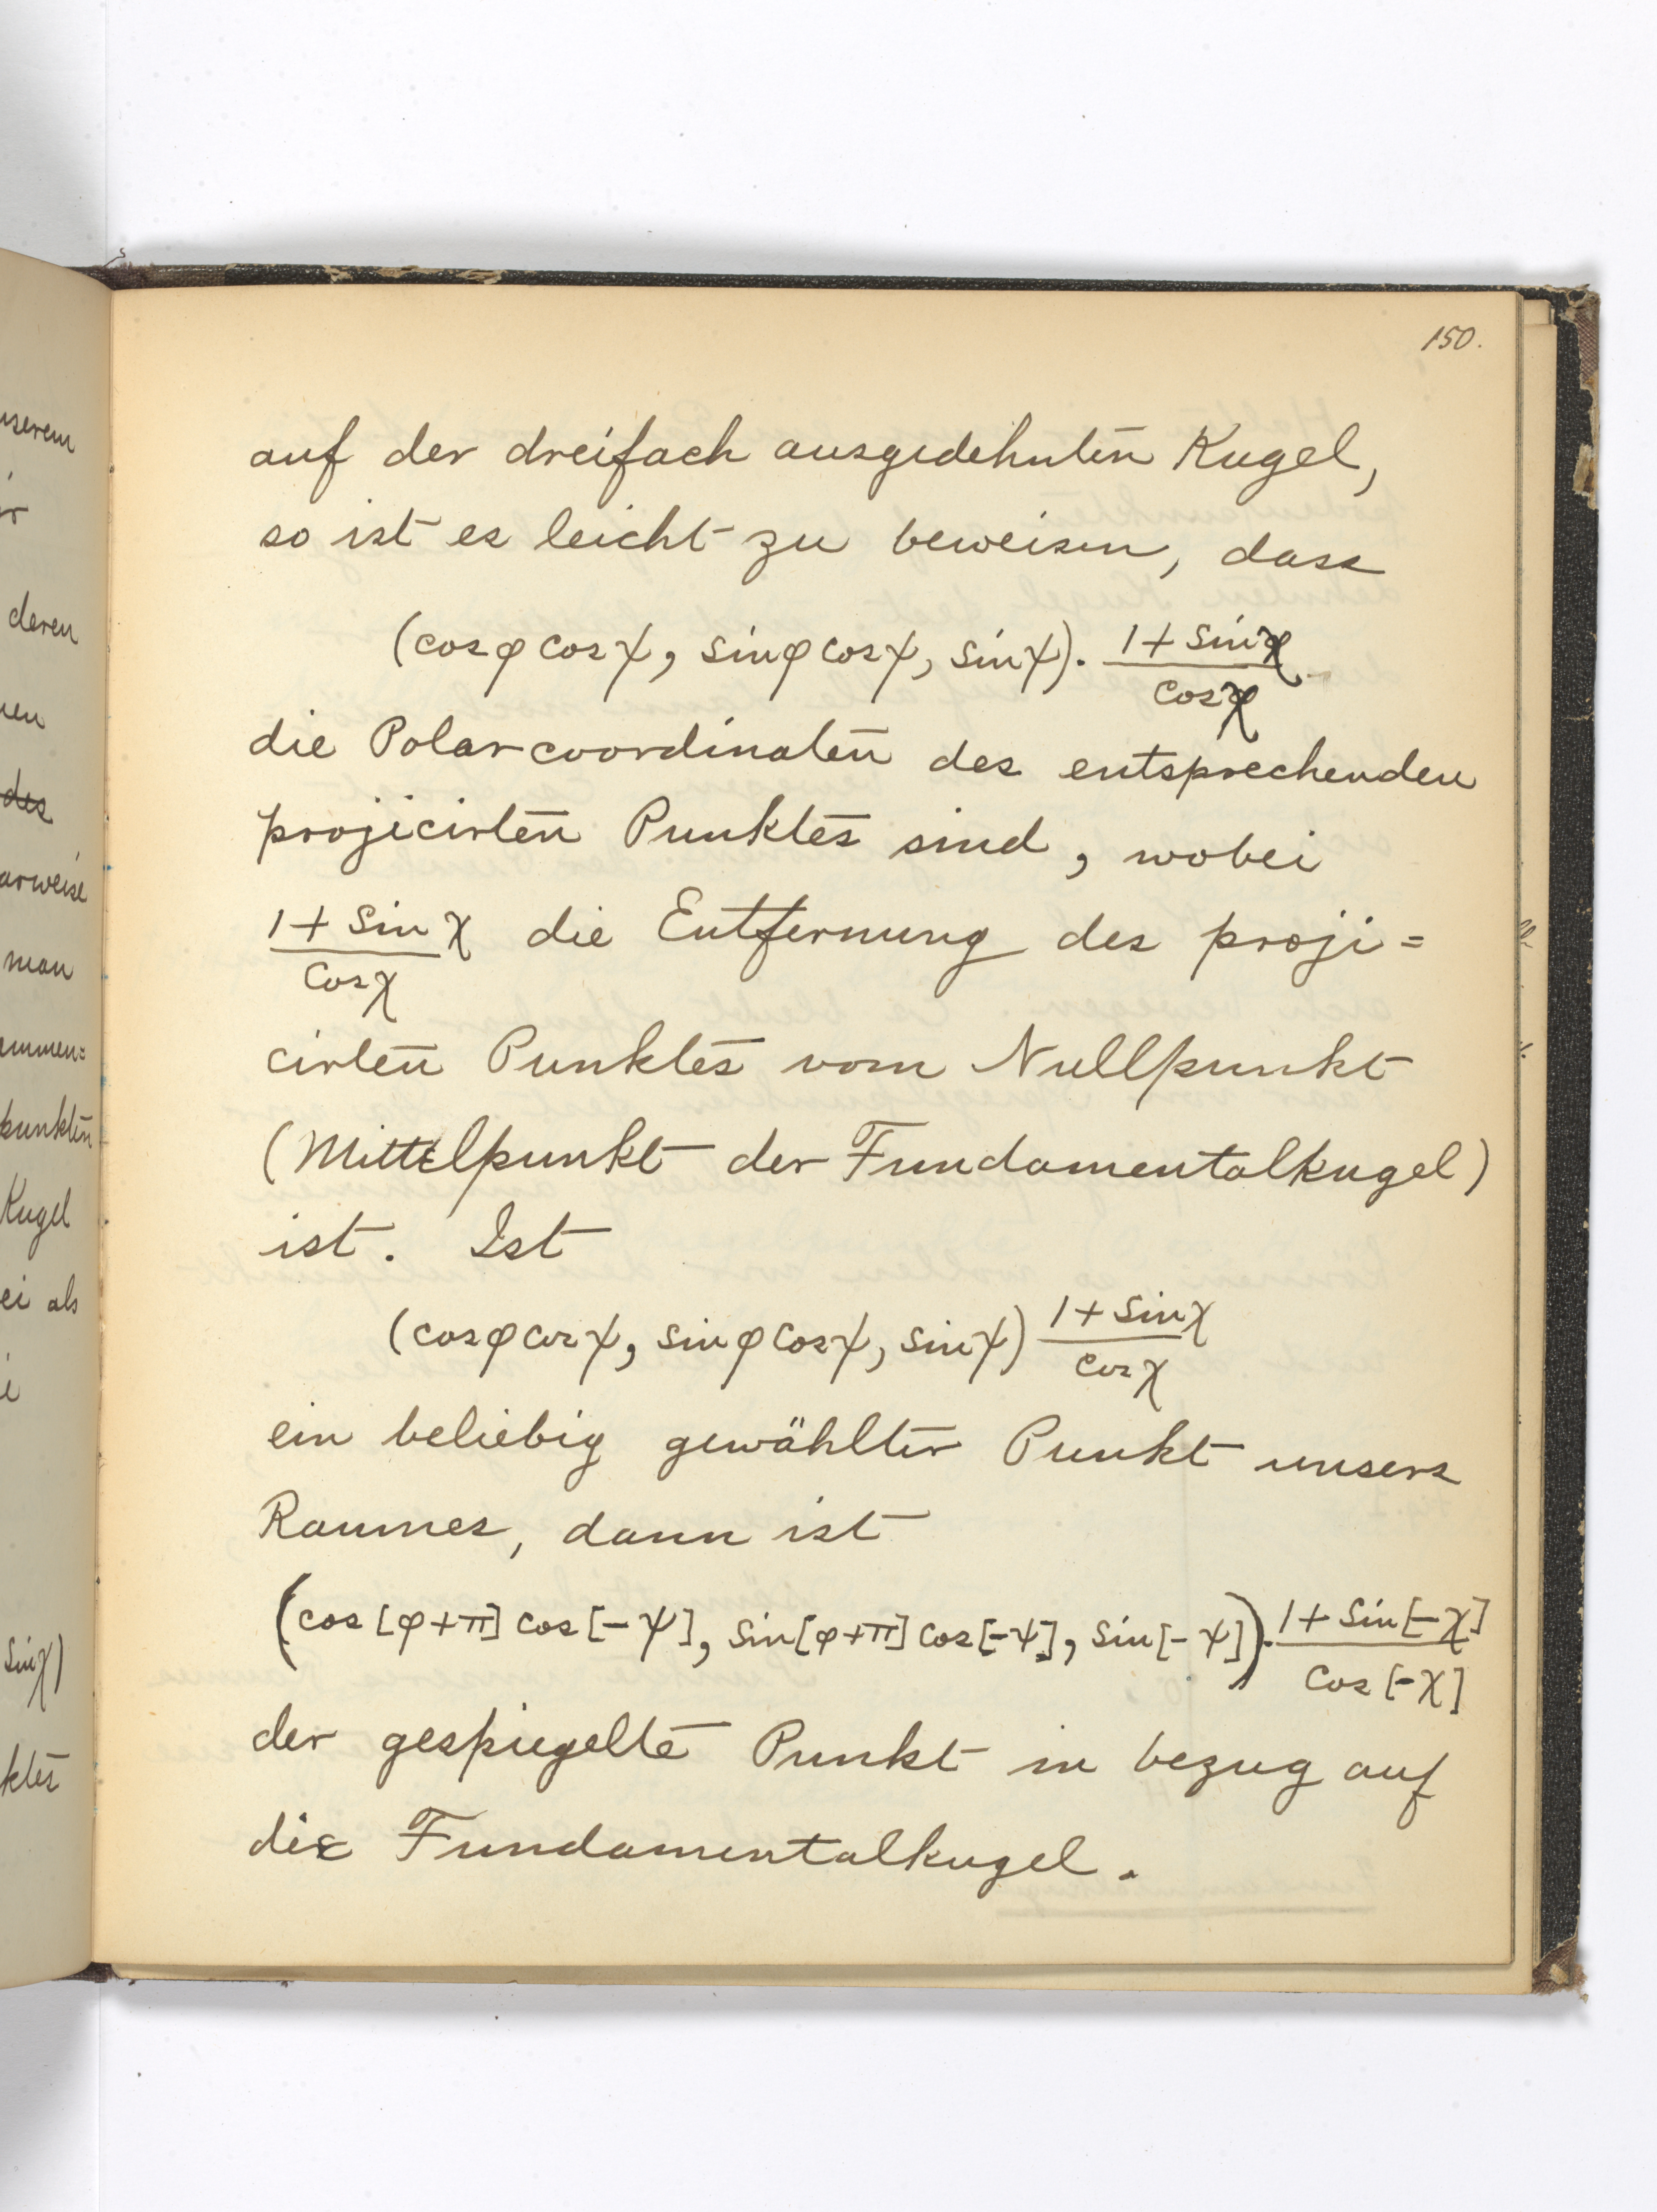 150.
auf der dreifach ausgedehnten Kugel,
so ist es leicht zu beweisen, dass
(cosφ cosψ, sinφ cosψ, sinψ). (1 + sinχ)/(cosχ)
die Polarcoordinaten des entsprechenden
projicirten Punktes sind, wobei
(1 + sin χ)/(cosχ) die Entfernung des proji=
cirten Punktes vom Nullpunkt
(Mittelpunkt der Fundamentalkugel)
ist. Ist
(cosφ cosψ, sinφ cosψ, sinψ) (1 + sinχ)/(cosχ)
ein beliebig gewählter Punkt unsers
Raumes, dann ist
(cos[φ+π] cos[-ψ], sin[φ+π] cos[-ψ], sin[-ψ]). (1 + sin[-χ])/(cos[-χ])
der gespiegelte Punkt in bezug auf
die Fundamentalkugel.
unserem
deren
des
man
Kugel
ei als
sinχ)